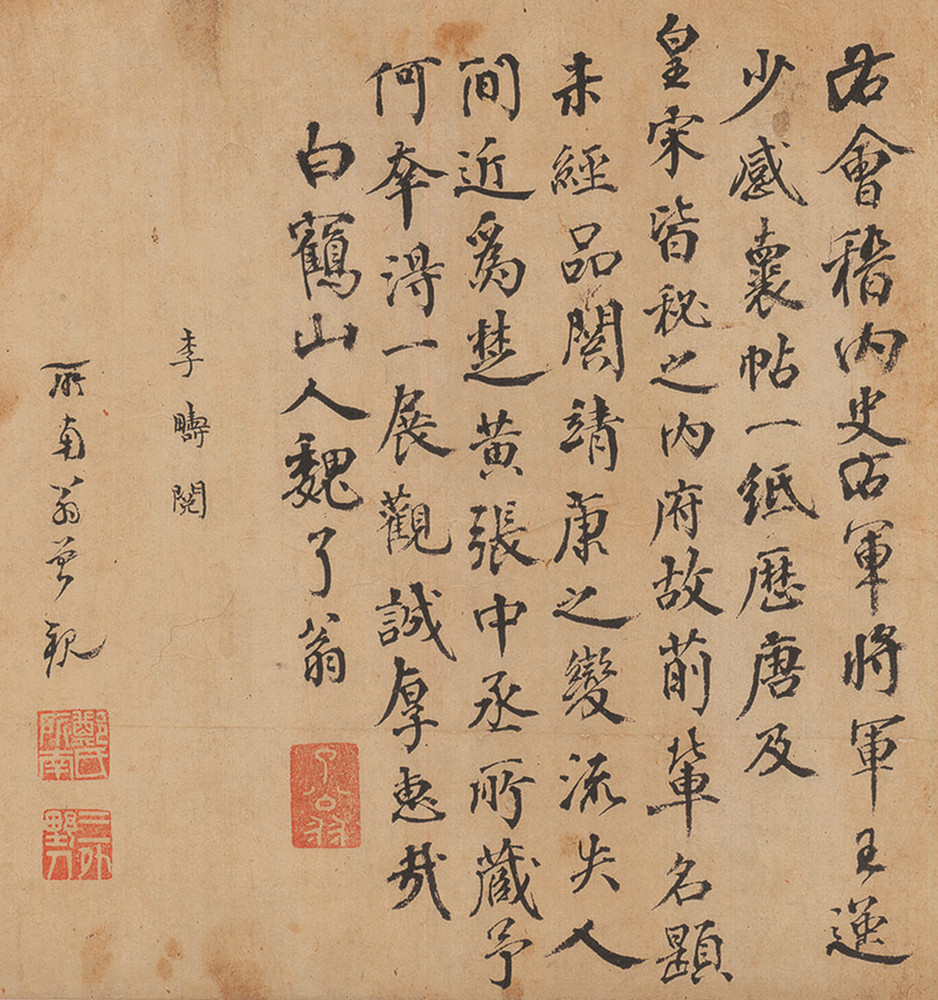 右會稽内史右軍將軍王逸
少感褱帖一紙歷唐及
皇宋皆秘之内府故前輩名題
未經品閱靖康之變流失人
間近爲楚黃張中丞所藏予
何幸得一展觀誠厚惠哉
白鶴山人魏了翁
了翁
李疇閱
所南翁曾觀
鄭氏所南
三外野人